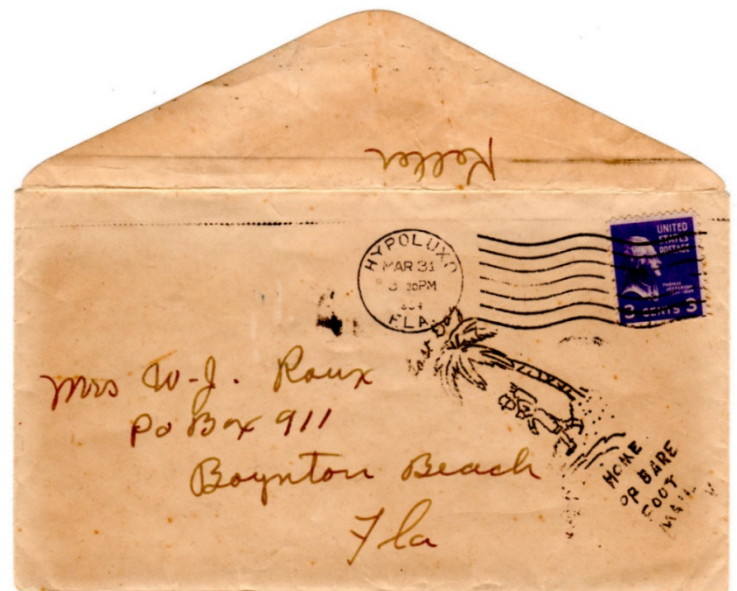 Keller
HYPOLUXO
MAR 31
30PM
FLA.
UNITED
STATES
POSTAGE
3 CENTS 3
Last Day
Mrs W-J. Roux
PO Box 911
Boynton Beach
Fla
HOME
OF BARE
FOOT
MAIL